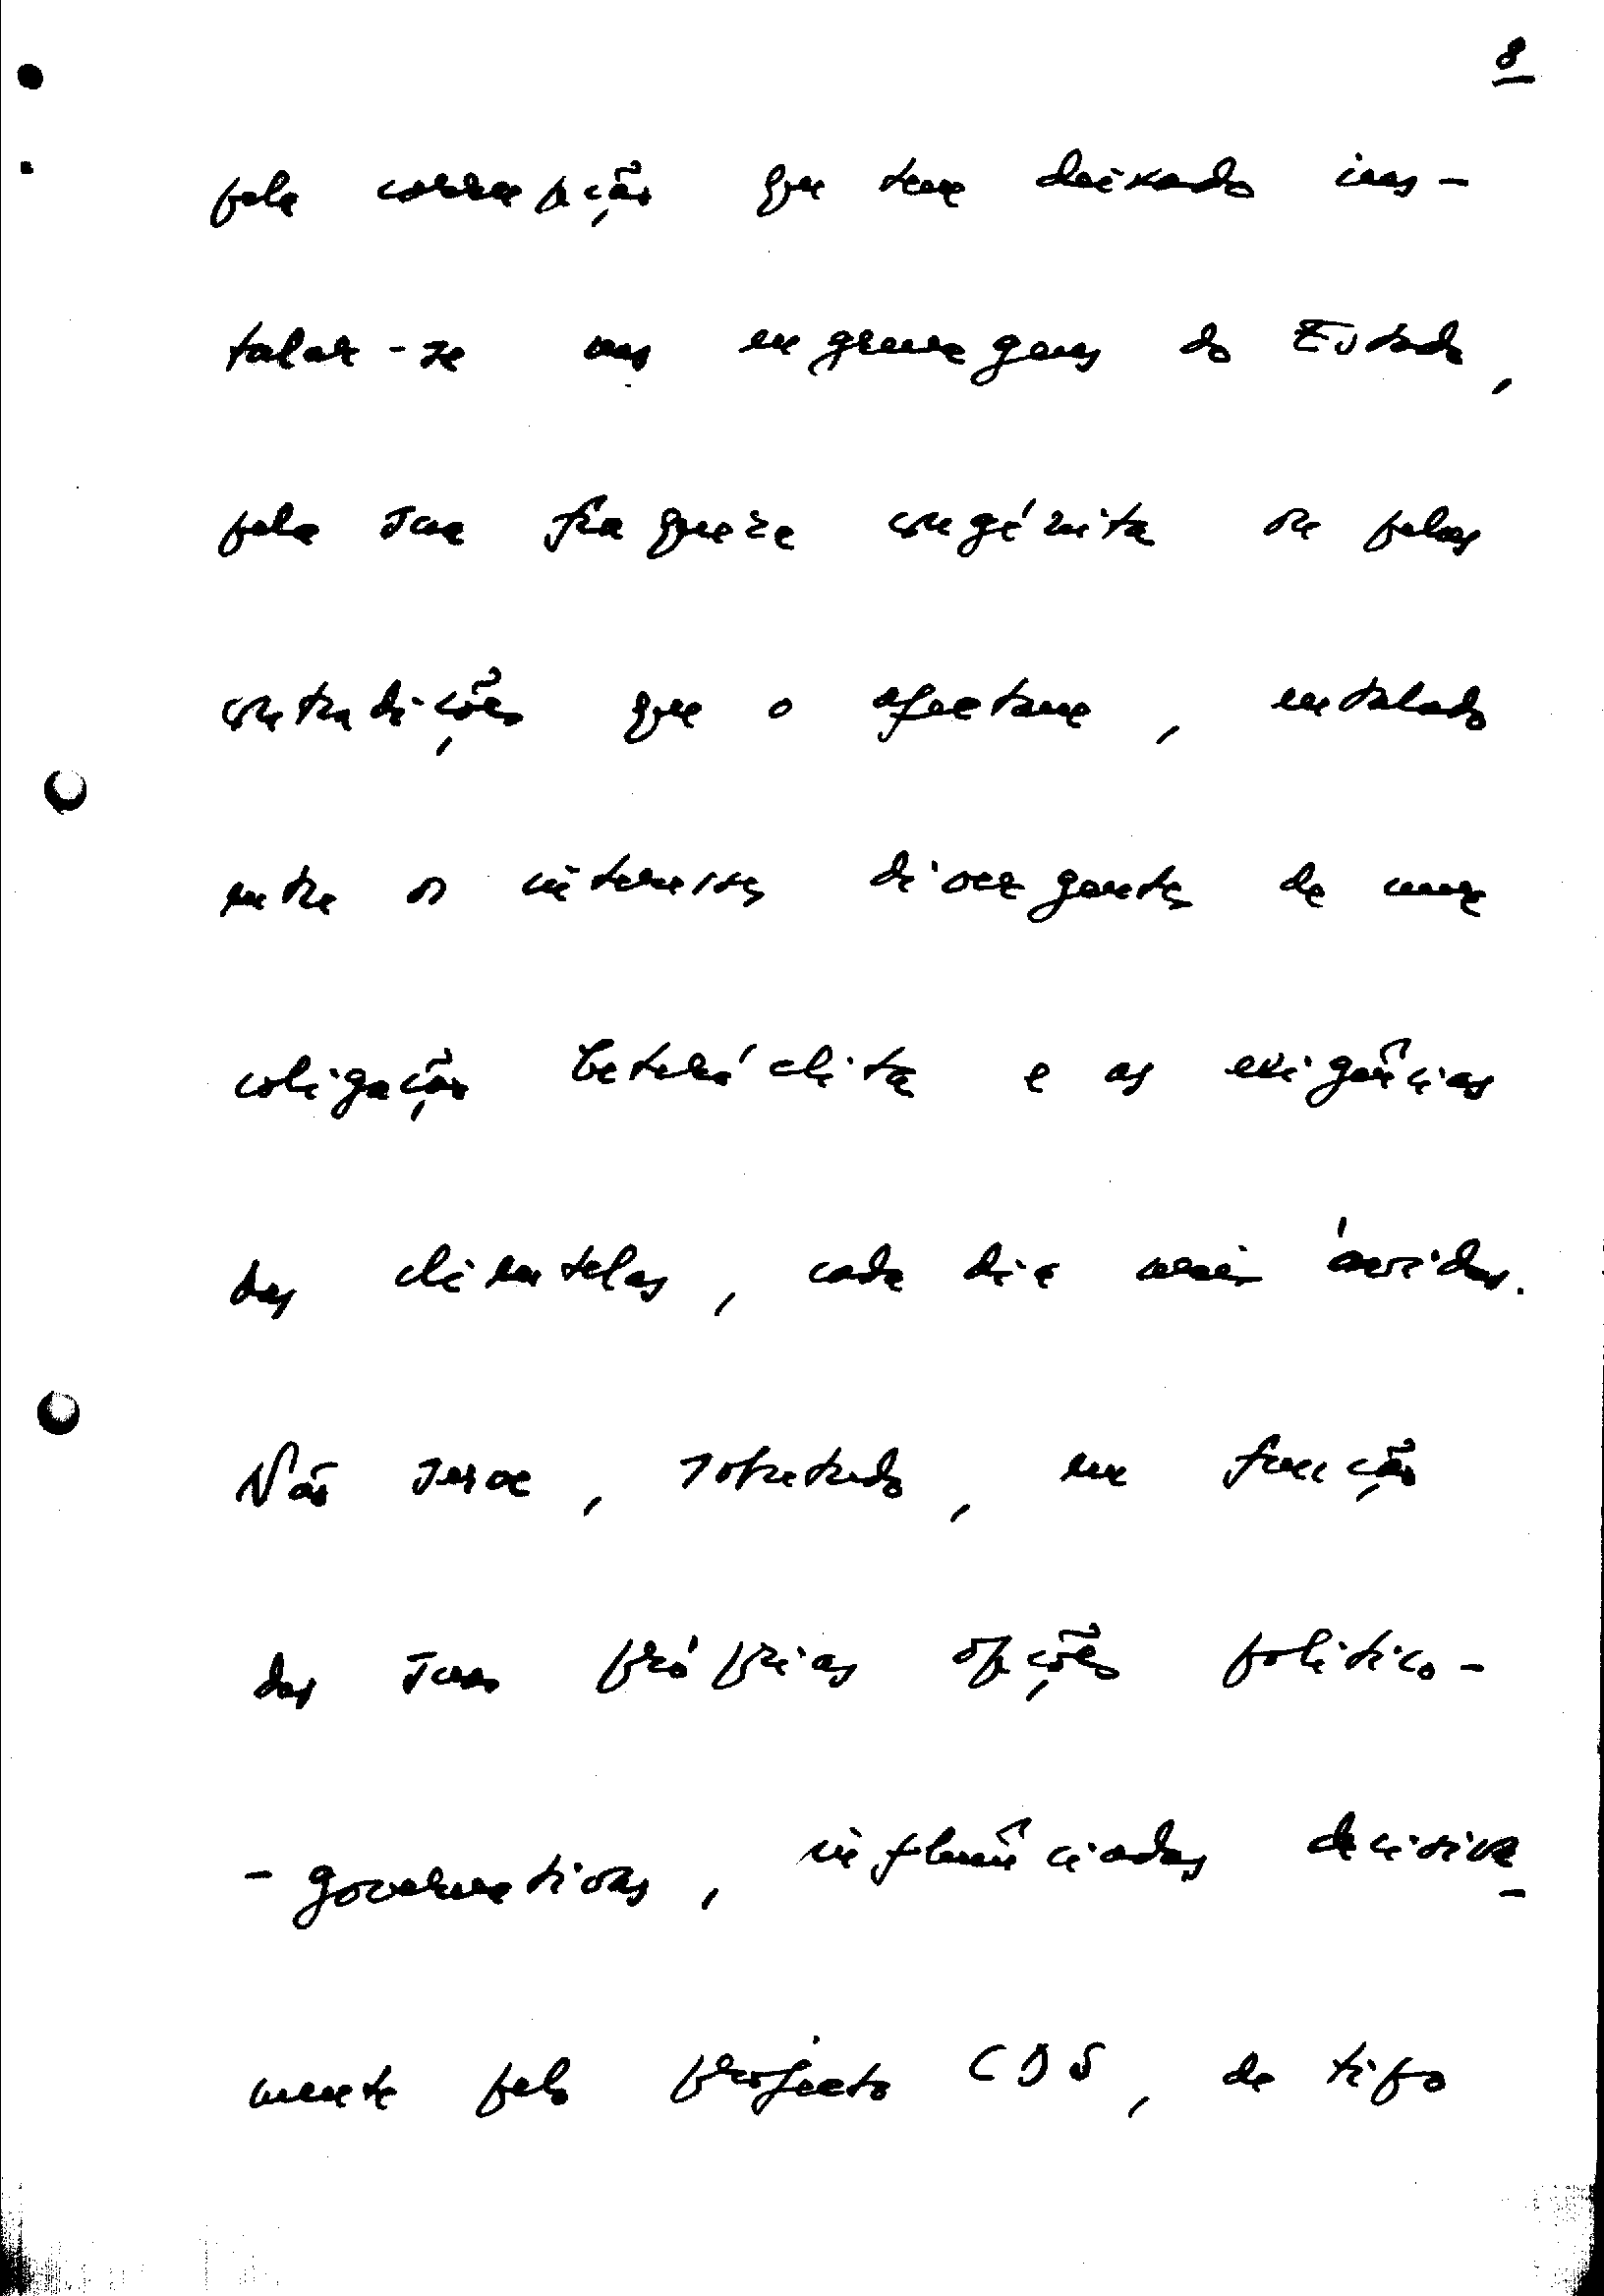 8
pela corrupção que tem deixado ins-
talar-se nas engrenagens do Estado,
pela sua fraqueza congénita ou pelas
contradições que o afectam, entalado
entre os interesses divergentes de uma
coligação heteróclita e as exigências
das clientelas, cada dia mais ávidas.
Não serve, sobretudo, em função
das suas próprias opções politico-
-governativas, influênciadas decisiva-
mente pelo projecto CDS, de tipo